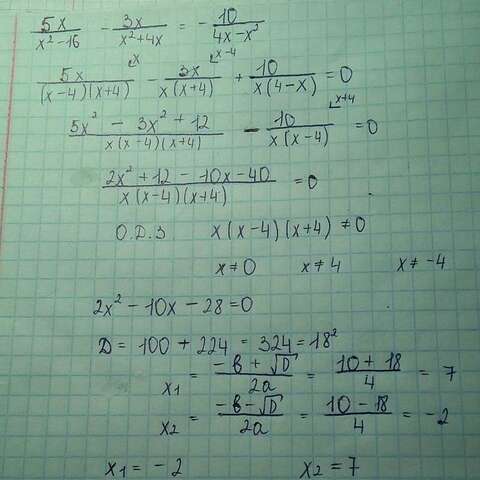 5x/(x²-16) - 3x/(x²+4x) = -10/(4x-x²)
5x/((x-4)(x+4)) ⌞x - 3x/(x(x+4)) ⌞x-4 + 10/(x(4-x)) = 0
(5x² - 3x² + 12)/(x(x-4)(x+4)) - 10/(x(x-4)) ⌞x+4 = 0
(2x² + 12 - 10x - 40)/(x(x-4)(x+4)) = 0
О.Д.З x(x-4)(x+4) ≠ 0
x ≠ 0 x ≠ 4 x ≠ -4
2x² - 10x - 28 = 0
D = 100 + 224 = 324 = 18²
x₁ = (-в + √D)/2a = (10 + 18)/4 = 7
x₂ = (-в - √D)/2a = (10 - 18)/4 = -2
x₁ = -2 x₂ = 7